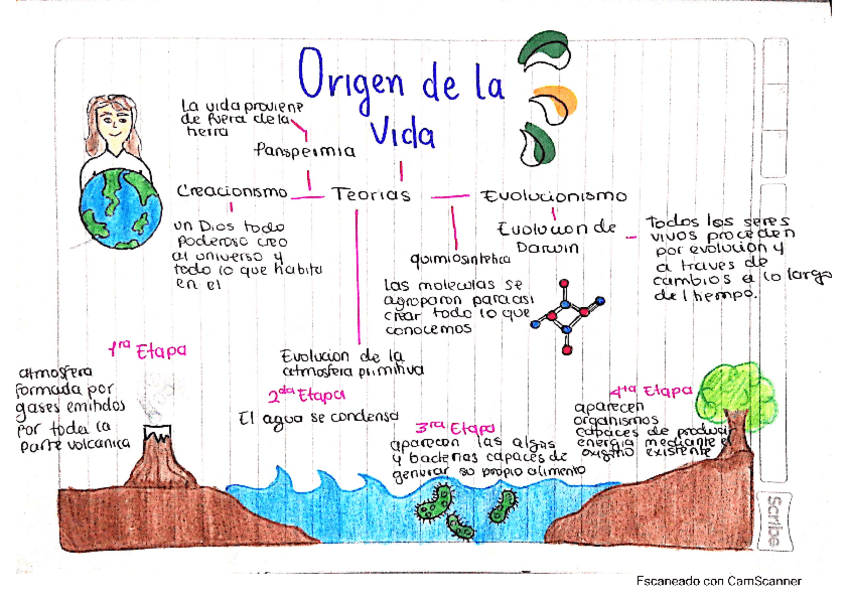 Origen de la
Vida
La vida proviene
de fuera de la
tierra
Panspermia
Creacionismo
Teorias
Evolucionismo
un Dios todo
poderoso creo
al universo y
todo lo que habita
en el
Evolucion de
Darwin
Todos los seres
vivos proceden
por evolucion y
a traves de
cambios a lo largo
del tiempo.
quimiosintetica
Las moleculas se
agroparon para asi
crear todo lo que
conocemos
Evolucion de la
atmosfera primitiva
1ra Etapa
atmosfera
formada por
gases emitidos
por toda la
parte volcanica
2da Etapa
El agua se condenso
3ra Etapa
aparecen las algas
y bacterias capaces de
generar su propio alimento
4ta Etapa
aparecen
organismos
capaces de producir
energia mediante el
oxigeno existente
Scribe
Escaneado con CamScanner